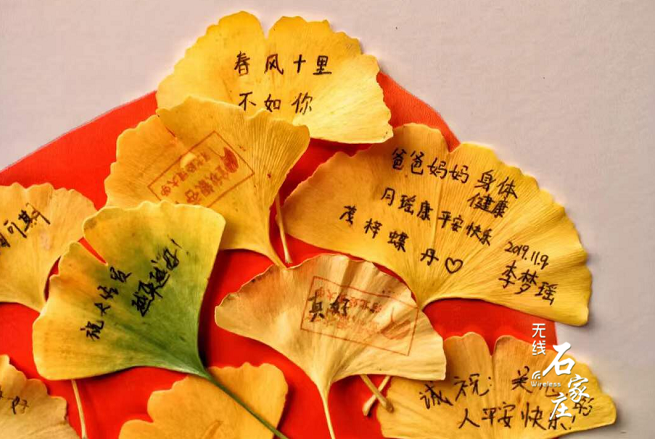 春风十里
不如你
爸爸妈妈 身体
健康
月瑶康平安快乐
茂梓蝶丹♡
2019.11.9
李梦瑶
可期
祝大宝贝
越来越好!
真好
诚祝:关心
的
人平安快乐!
无线
Wireless
石家庄